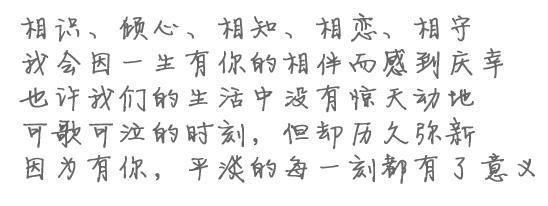 相识、倾心、相知、相恋、相守
我会因一生有你的相伴而感到庆幸
也许我们的生活中没有惊天动地
可歌可泣的时刻，但却历久弥新
因为有你，平淡的每一刻都有了意义